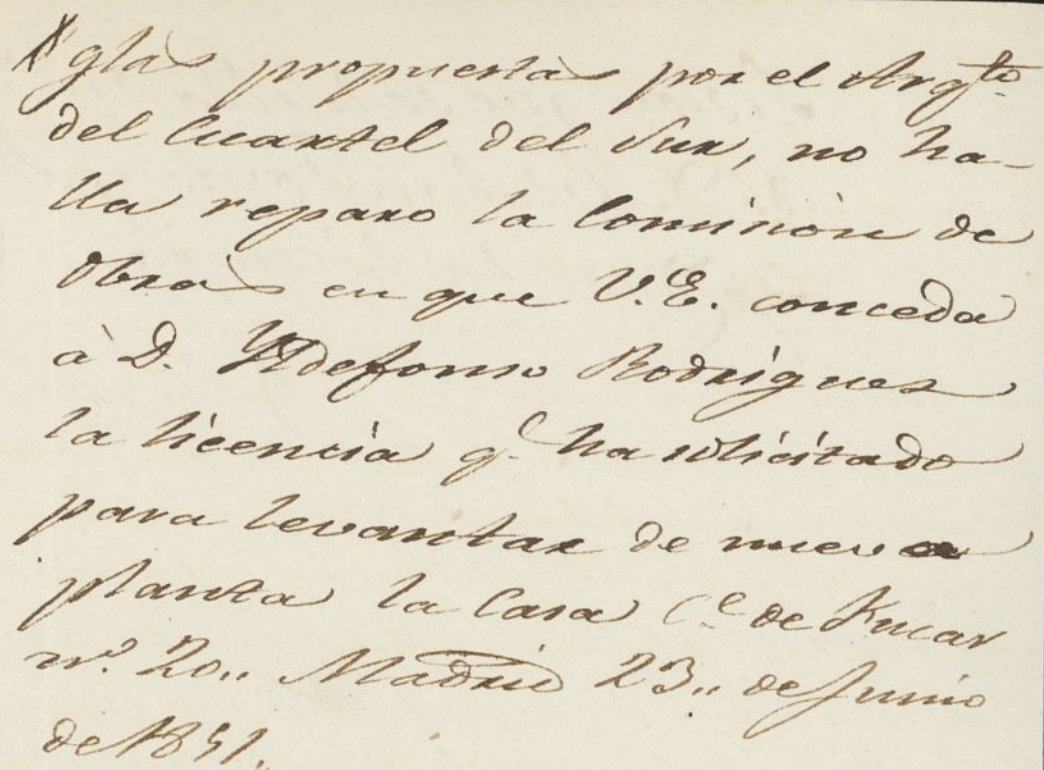 glas propuestas por el Arqto.
del Cuartel del Sur, no ha-
lla reparo la Comision de
Obras en que V.E. conceda
à D. Yldefonso Rodriguez
la licencia q.e ha solicitado
para levantar de nueva
planta la Casa C.e de Fucar
n.o 20,, Madrid 23,, de Junio
de 1851.